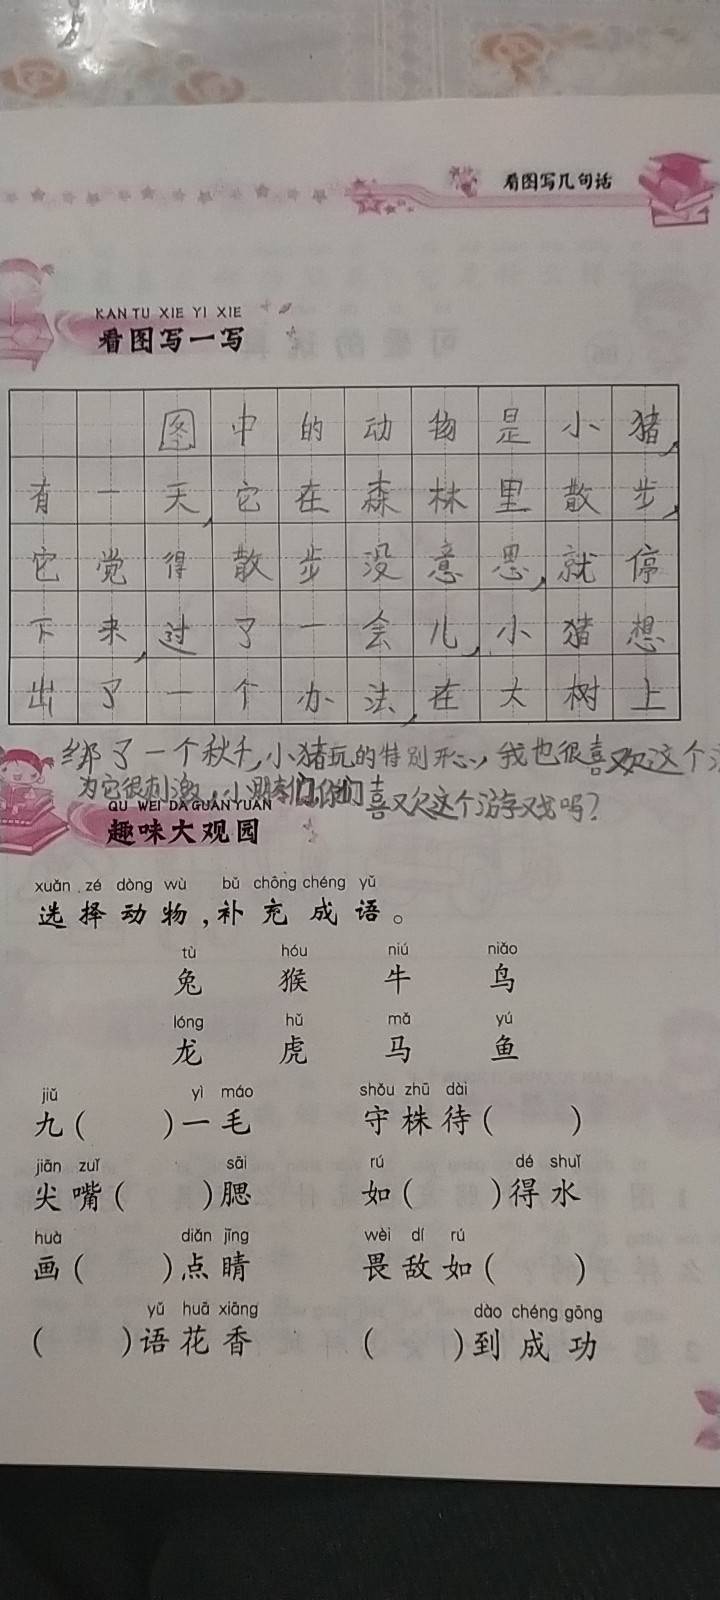 看图写几句话
KAN TU XIE YI XIE
看图写一写
图中的动物是小猪,
有一天,它在森林里散步,
它觉得散步没意思,就停
下来,过了一会儿,小猪想
出了一个办法,在大树上
绑了一个秋千,小猪玩的特别开心,我也很喜欢这个
为它很刺激,小朋友们,你们喜欢这个游戏吗?
QU WEI DA GUAN YUAN
趣味大观园
xuǎn zé dòng wù bǔ chōng chéng yǔ
选择动物,补充成语。
tù hóu niú niǎo
兔 猴 牛 鸟
lóng hǔ mǎ yú
龙 虎 马 鱼
jiǔ yì máo shǒu zhū dài
九( )一毛 守株待( )
jiān zuǐ sāi rú dé shuǐ
尖嘴( )腮 如( )得水
huà diǎn jīng wèi dí rú
画( )点睛 畏敌如( )
yǔ huā xiāng dào chéng gōng
( )语花香 ( )到成功